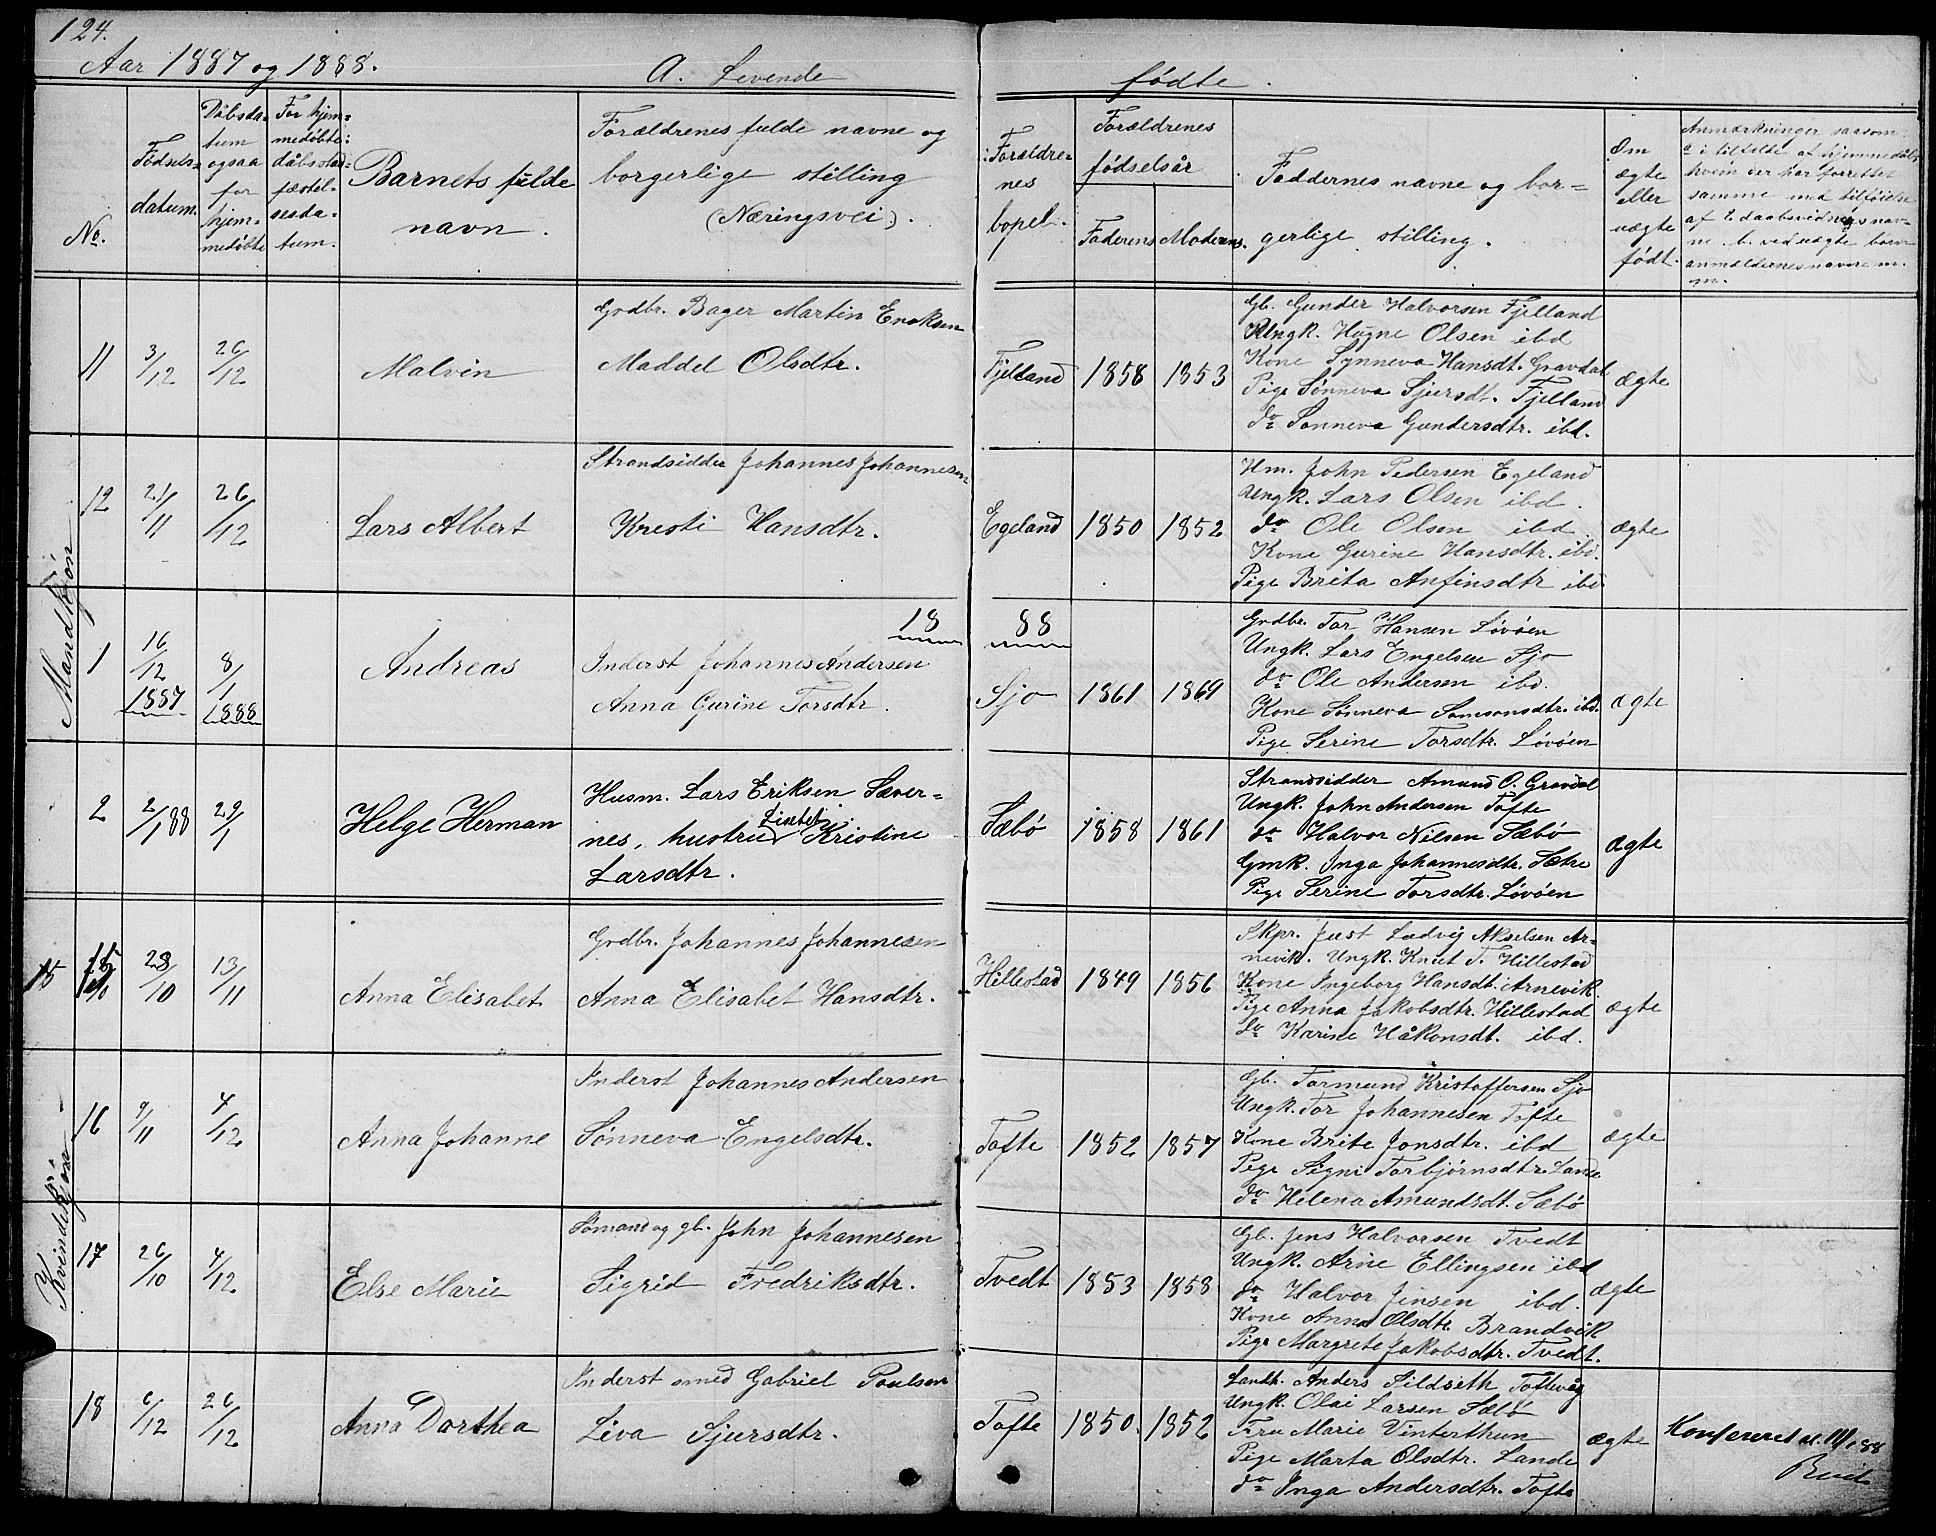 124.
Aar 1887 og 1888. A. Levende fødte.
No.
Fødsels-
datum.
Dåbsda-
tum
ogsaa
for
hjem-
medøbte
For hjem-
medøbte:
dåbsstad-
fæstel-
sesda-
tum.
Barnets fulde
navn.
Forældrenes fulde navne og
borgerlige stilling
(Næringsvei).
Forældre-
nes
bopel.
Forældrenes
fødselsår
Faderens Moderens.
Faddernes navne og bor-
gerlige stilling.
Om
ægte
eller
uægte
født.
Anmærkninger saasom:
a i tilfelde af hjemmedåb,
hvem der har forrettet
samme med tilføielse
af 2 daabsvidners nav-
ne. b. ved uægte børn
anmeldernes navne m.
m.
Mandkjøn
11 3/12 26/12 Malvin
Grdbr. Bager Martin Enoksen
Maddel Olsdtr.
Fjelland 1858 1853
Gb. Gunder Halvorsen Fjelland
Ungk. Hugne Olsen ibd
Kone Synneva Hansdt. Gravdal
Pige Sønneva Sjursdt. Fjelland
do Sønneva Gundersdtr. ibd.
ægte
12 21/11 26/12 Lars Albert
Strandsidder Johannes Johannesen
Kresti Hansdtr.
Egeland 1850 1852
Hm. John Pedersen Egeland
Ungk. Lars Olsen ibd.
do Ole Olsen ibd
Kone Gurine Hansdtr. ibd.
Pige Brita Anfinsdtr ibd
ægte
18 88
1 16/12 1887 8/1 1888 Andreas
Inderst Johannes Andersen
Anna Gurine Torsdtr.
Sjo 1861 1869
Grdbr. Tor Hansen Løvøen
Ungk. Lars Engelsen Sjo
do Ole Andersen ibd.
Kone Sønneva Samsonsdtr. ibd.
Pige Serine Torsdtr. Løvøen
ægte
2 2/1 88 29/1 Helge Herman
Husm. Lars Eriksen Sæver-
nes, hustru Kristine
Larsdtr.
Sæbö 1858 1861
Strandsidder Amund O. Gravdal
Ungk. John Andersen Tofte
do Halvor Nilsen Sæbö
Gmk. Inga Johannesdtr. Sætre
Pige Serine Torsdtr. Løvøen
ægte
Kvindekjøn
15 15 28/10 13/11 Anna Elisabet
Grdbr. Johannes Johannesen
Anna Elisabet Hansdtr.
Hillestad 1849 1856
Skpr. Just Ludvig Akselsen Ar-
nevik. Ungk. Knut T. Hillestad
Kone Ingeborg Hansdt. Arnevik
Pige Anna Jakobsdtr. Hillestad
do Karine Håkonsdt. ibd.
ægte
16 9/11 4/12 Anna Johanne
Inderst Johannes Andersen
Sønneva Engelsdtr.
Tofte 1852 1857
Gb. Tormund Kristoffersen Sjo
Ungk. Tor Johannesen Tofte
Kone Brite Jonsdtr. ibd
Pige Signi Torbjørnsdtr. Lande
do Helena Amundsdt. Sæbö
ægte
17 26/10 4/12 Else Marie
Sømand og gb. John Johannesen
Sigrid Fredriksdtr.
Tvedt 1853 1858
Gb. Jens Halvorsen Tvedt
Ungk. Arne Ellingsen ibd
do Halvor Jensen ibd.
Kone Anna Olsdtr. Brandvik
Pige Margrete Jakobsdtr. Tvedt.
ægte
18 6/12 26/12 Anna Dorthea
Inderst smed Gabriel Poulsen
Liva Sjursdtr.
Tofte 1850. 1852
Landh. Anders Sildseth Toftevåg
Ungk. Olai Larsen Sæbö
Fru Marie Vinterthun
Pige Marta Olsdtr. Lande
do Inga Andersdtr. Tofte
ægte
Konfereret